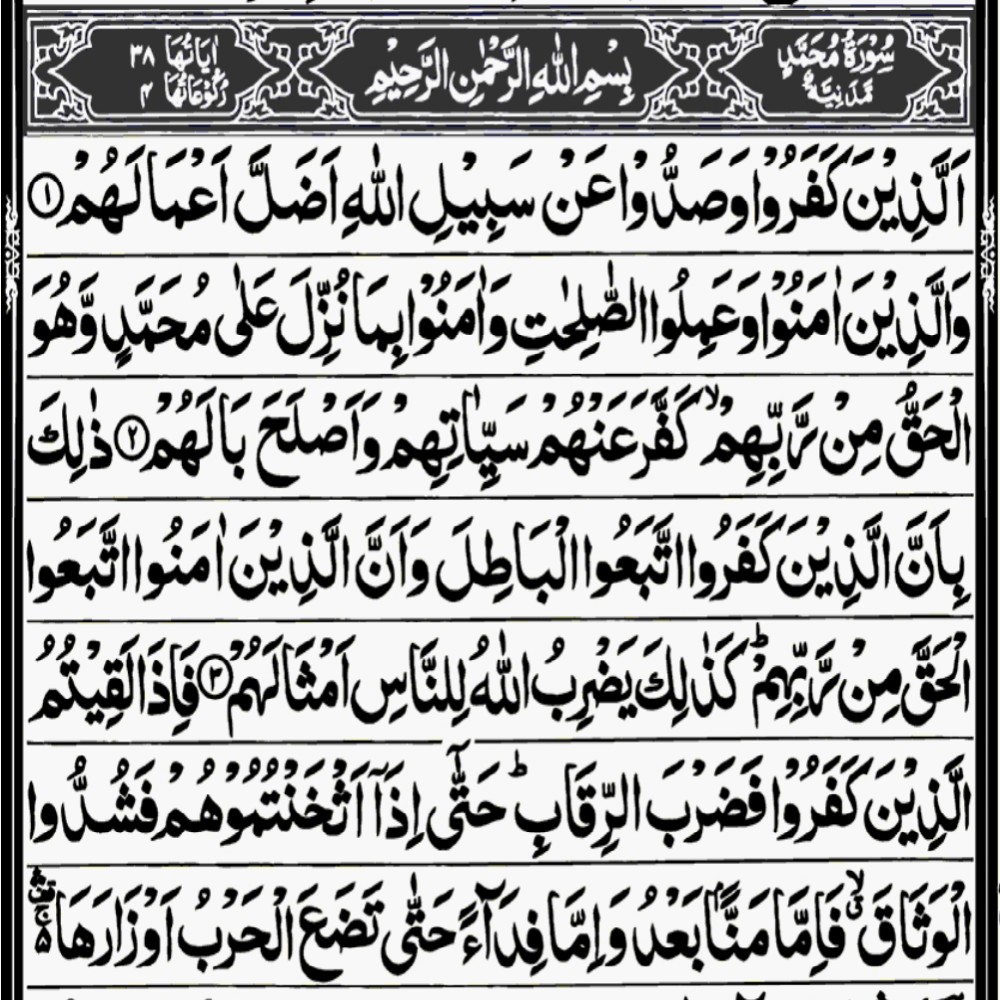 سُوْرَةُ مُحَمَّدٍ مَّدَنِيَّةٌ
بِسْمِ اللّٰهِ الرَّحْمٰنِ الرَّحِيْمِ
اٰيَاتُهَا ٣٨ رُكُوْعَاتُهَا ٤
اَلَّذِيْنَ كَفَرُوْا وَصَدُّوْا عَنْ سَبِيْلِ اللّٰهِ اَضَلَّ اَعْمَالَهُمْ ۝١
وَالَّذِيْنَ اٰمَنُوْا وَعَمِلُوا الصّٰلِحٰتِ وَاٰمَنُوْا بِمَا نُزِّلَ عَلٰى مُحَمَّدٍ وَّهُوَ
الْحَقُّ مِنْ رَّبِّهِمْ ۙ كَفَّرَ عَنْهُمْ سَيِّاٰتِهِمْ وَاَصْلَحَ بَالَهُمْ ۝٢ ذٰلِكَ
بِاَنَّ الَّذِيْنَ كَفَرُوا اتَّبَعُوا الْبَاطِلَ وَاَنَّ الَّذِيْنَ اٰمَنُوا اتَّبَعُوا
الْحَقَّ مِنْ رَّبِّهِمْ ؕ كَذٰلِكَ يَضْرِبُ اللّٰهُ لِلنَّاسِ اَمْثَالَهُمْ ۝٣ فَاِذَا لَقِيْتُمُ
الَّذِيْنَ كَفَرُوْا فَضَرْبَ الرِّقَابِ ؕ حَتّٰٓى اِذَاۤ اَثْخَنْتُمُوْهُمْ فَشُدُّوا
الْوَثَاقَ ۙ فَاِمَّا مَنًّۢا بَعْدُ وَاِمَّا فِدَآءً حَتّٰى تَضَعَ الْحَرْبُ اَوْزَارَهَا